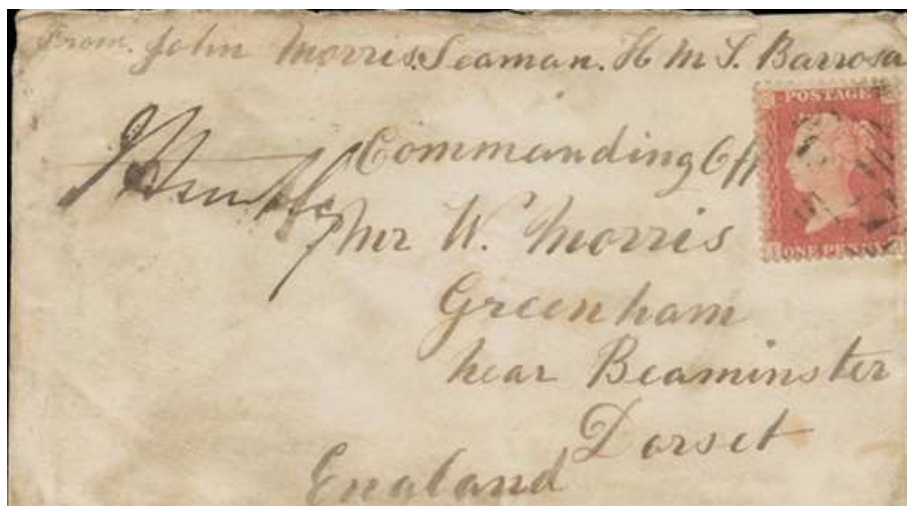 From. John Morris. Seaman. H M S. Barrosa
POSTAGE
Commanding Off
Mr W. Morris
ONE PENNY
Greenham
near Beaminster
Dorset
England